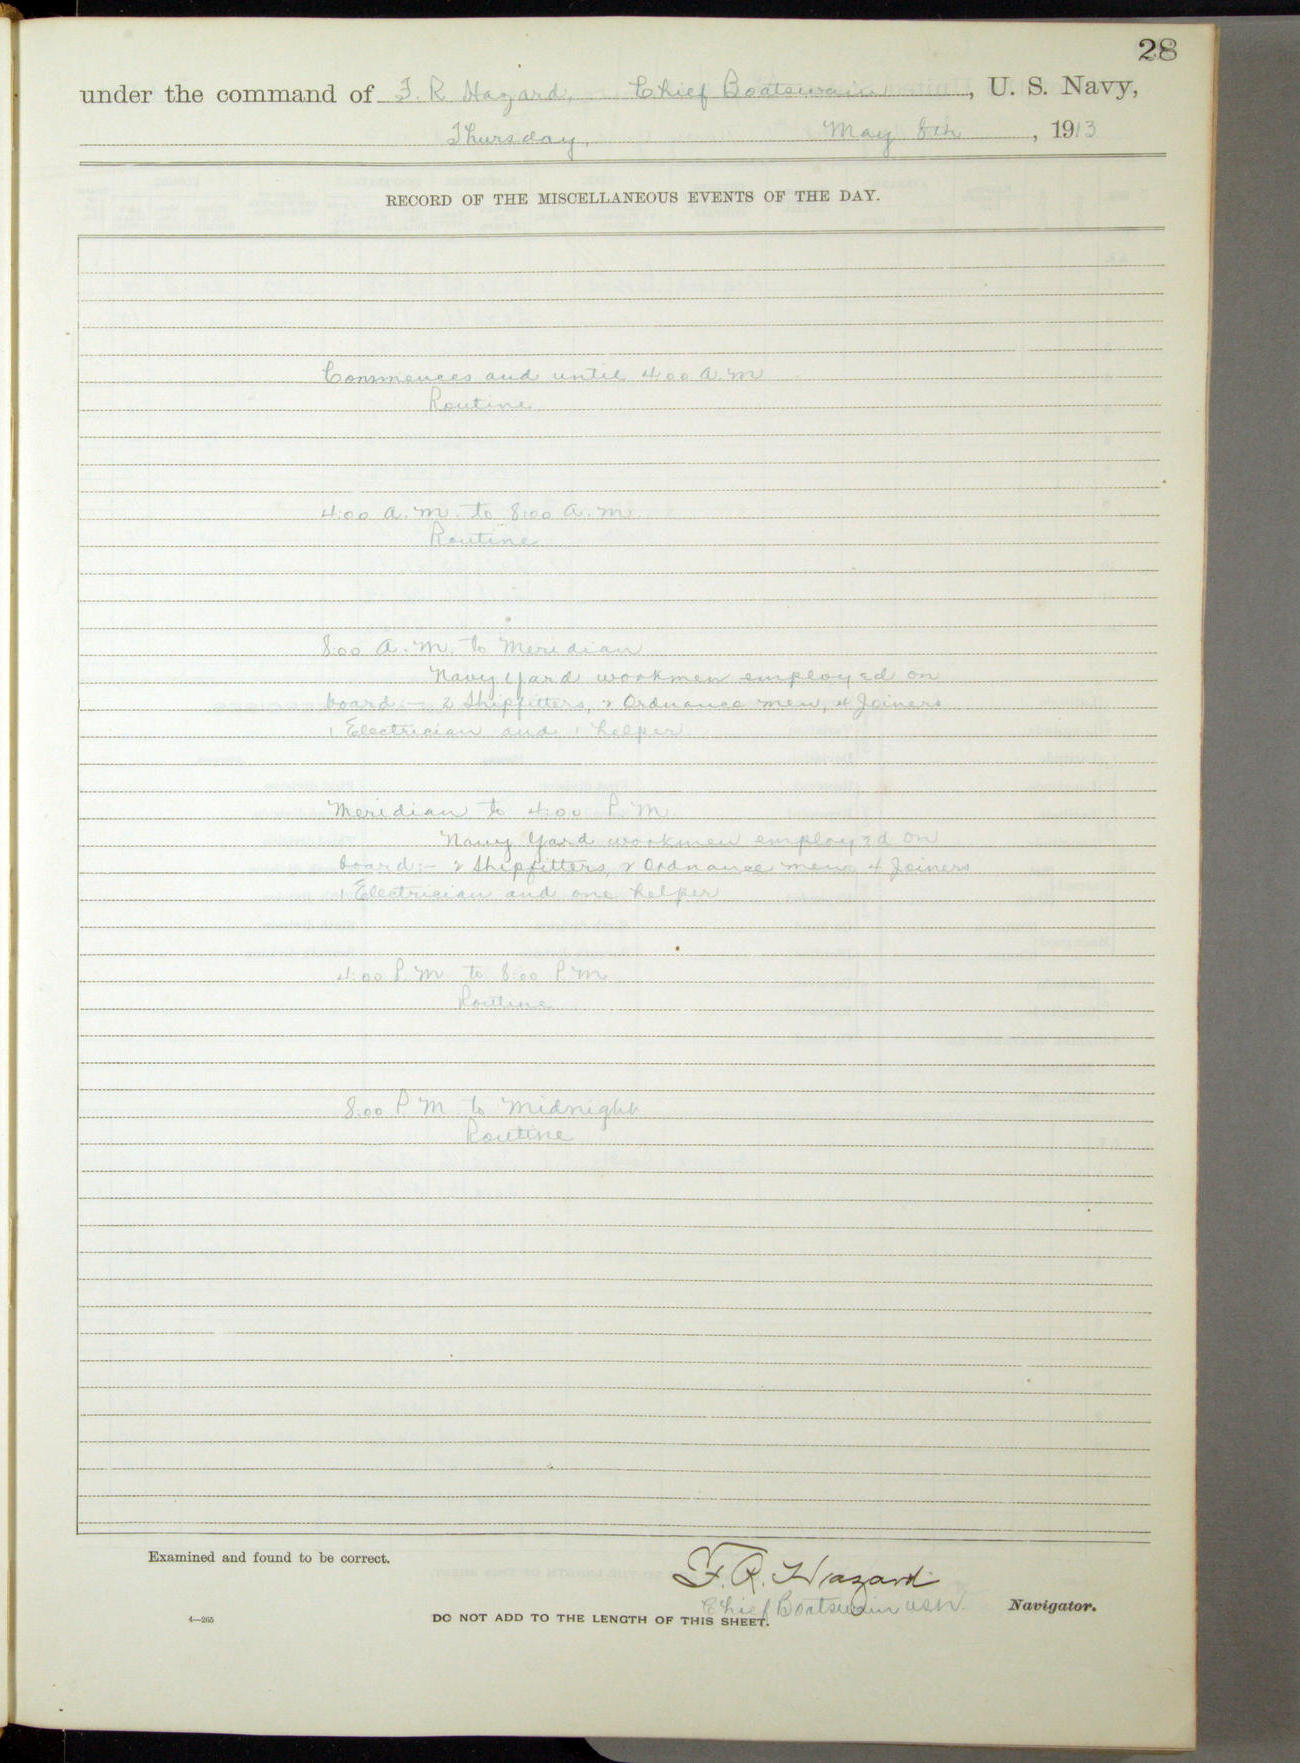 28
under the command of F. R. Hazard, Chief Boatswain, U. S. Navy,
Thursday, May 8th, 1913
RECORD OF THE MISCELLANEOUS EVENTS OF THE DAY.
Commences and until 4:00 A.M
Routine
4:00 A.M. to 8:00 A.M.
Routine
8:00 A.M. to Meridian
Navy Yard workmen employed on
board:- 2 Shipfitters, 2 Ordnance men, 4 Joiners
1 Electrician and 1 helper
Meridian to 4:00 P.M.
Navy Yard workmen employed on
board:- 2 Shipfitters, 2 Ordnance men, 4 Joiners
1 Electrician and one helper
4:00 P.M to 8:00 P.M
Routine
8:00 P.M. to Midnight
Routine
Examined and found to be correct.
F. R. Hazard
Chief Boatswain U.S.N. Navigator.
4—265 DO NOT ADD TO THE LENGTH OF THIS SHEET.